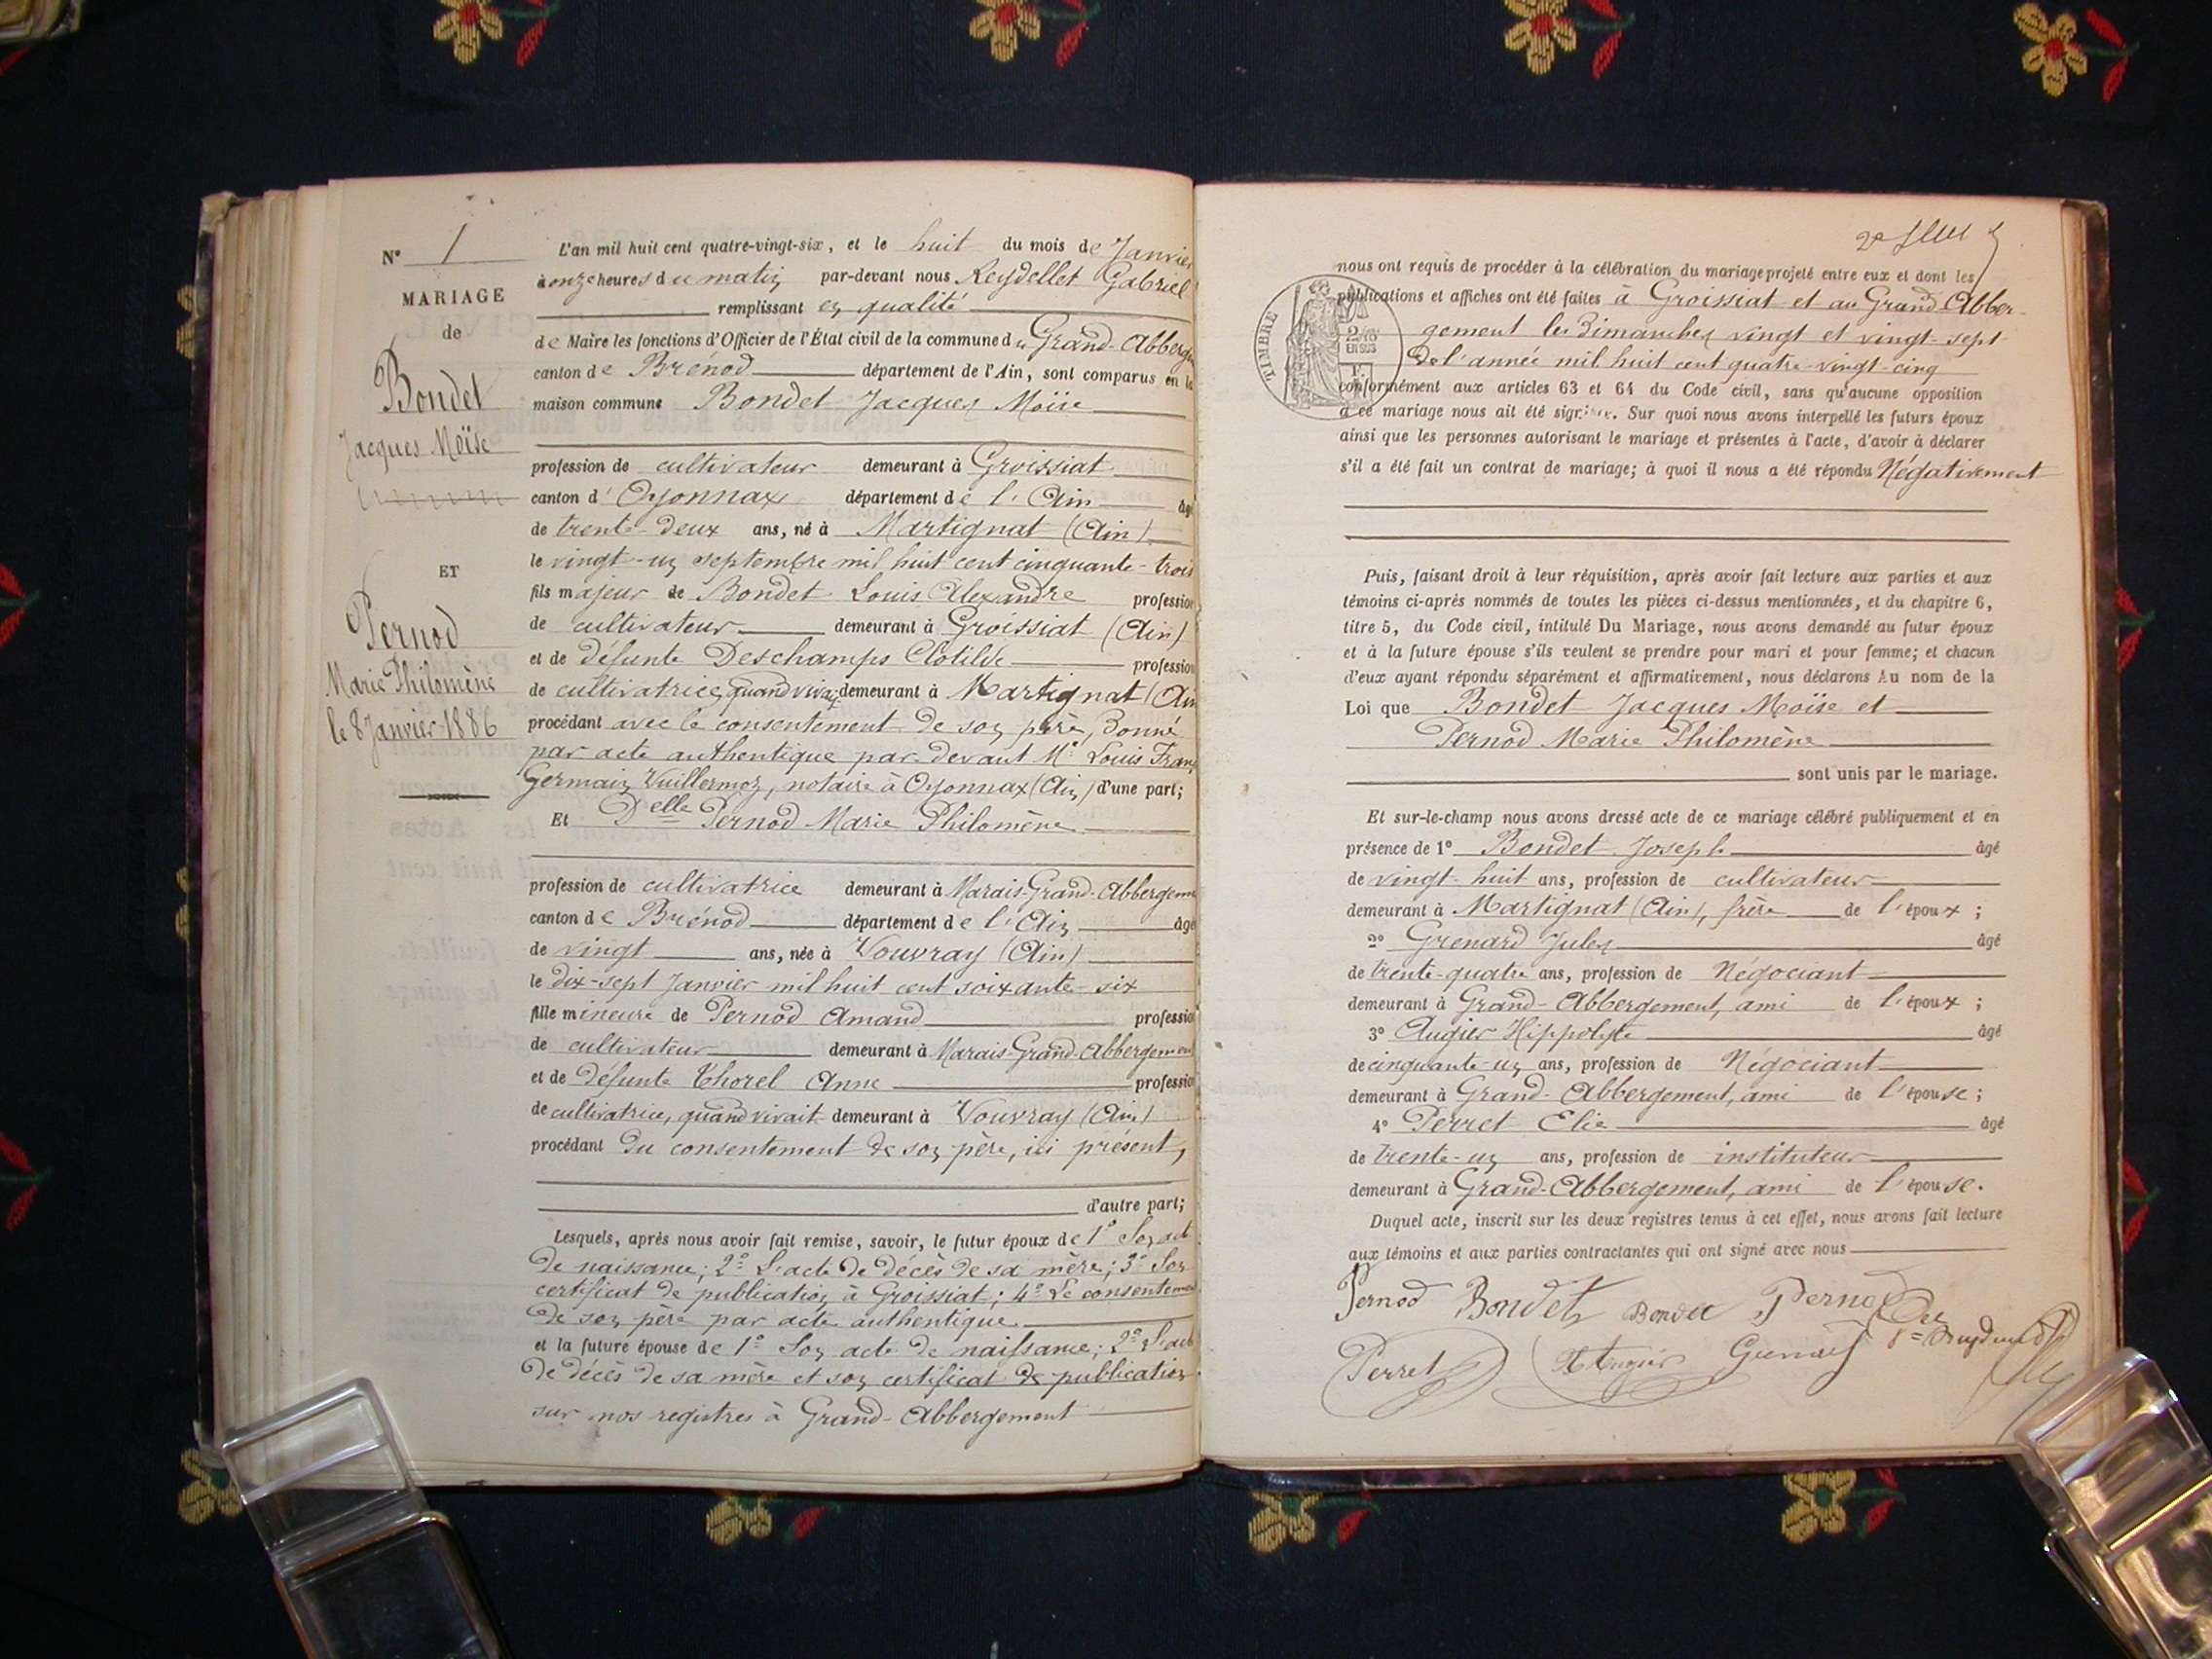 N° 1
MARIAGE
de
Bondet
Jacques Moïse
ET
Pernod
Marie Philomène
le 8 Janvier 1886
L'an mil huit cent quatre-vingt-six, et le huit du mois de Janvier
à onze heures du matin par-devant nous Reydellet Gabriel
remplissant en qualité
de Maire les fonctions d'Officier de l'État civil de la commune du Grand-Abberge
canton de Brénod département de l'Ain, sont comparus en la
maison commune Bondet Jacques Moïse
profession de cultivateur demeurant à Groissiat
canton d'Oyonnax département de l'Ain âgé
de trente-deux ans, né à Martignat (Ain)
le vingt-un septembre mil huit cent cinquante-trois
fils majeur de Bondet Louis Alexandre profession
de cultivateur demeurant à Groissiat (Ain)
et de défunte Deschamps Clotilde profession
de cultivatrice, quand vivait demeurant à Martignat (Ain
procédant avec le consentement de son père, donné
par acte authentique par devant Me Louis Fran
Germain Vuillermoz, notaire à Oyonnax (Ain) d'une part;
Et Delle Pernod Marie Philomène
profession de cultivatrice demeurant à Marais-Grand-Abbergeme
canton de Brénod département de l'Ain âgé
de vingt ans, née à Vouvray (Ain)
le dix-sept Janvier mil huit cent soixante-six
fille mineure de Pernod Amand profession
de cultivateur demeurant à Marais-Grand-Abbergement
et de défunte Thorel Anne profession
de cultivatrice, quand vivait demeurant à Vouvray (Ain)
procédant du consentement de son père, ici présent,
d'autre part;
Lesquels, après nous avoir fait remise, savoir, le futur époux de 1° Son acte
de naissance; 2° L'acte de décès de sa mère; 3° Son
certificat de publication à Groissiat; 4° Le consentement
de son père par acte authentique
et la future épouse de 1° Son acte de naissance; 2° L'acte
de décès de sa mère et son certificat de publication
sur nos registres à Grand-Abbergement
nous ont requis de procéder à la célébration du mariage projeté entre eux et dont les
publications et affiches ont été faites à Groissiat et au Grand-Abber-
gement les Dimanches vingt et vingt-sept
de l'année mil huit cent quatre-vingt-cinq
TIMBRE
2/10
EN SUS
conformément aux articles 63 et 64 du Code civil, sans qu'aucune opposition
à ce mariage nous ait été signifiée. Sur quoi nous avons interpellé les futurs époux
ainsi que les personnes autorisant le mariage et présentes à l'acte, d'avoir à déclarer
s'il a été fait un contrat de mariage; à quoi il nous a été répondu Négativement
Puis, faisant droit à leur réquisition, après avoir fait lecture aux parties et aux
témoins ci-après nommés de toutes les pièces ci-dessus mentionnées, et du chapitre 6,
titre 5, du Code civil, intitulé Du Mariage, nous avons demandé au futur époux
et à la future épouse s'ils veulent se prendre pour mari et pour femme; et chacun
d'eux ayant répondu séparément et affirmativement, nous déclarons Au nom de la
Loi que Bondet Jacques Moïse et
Pernod Marie Philomène
sont unis par le mariage.
Et sur-le-champ nous avons dressé acte de ce mariage célébré publiquement et en
présence de 1° Bondet Joseph âgé
de vingt-huit ans, profession de cultivateur
demeurant à Martignat (Ain), frère de l'époux;
2° Grenard Jules âgé
de trente-quatre ans, profession de Négociant
demeurant à Grand-Abbergement, ami de l'époux;
3° Augier Hippolyte âgé
de cinquante-un ans, profession de Négociant
demeurant à Grand-Abbergement, ami de l'épouse;
4° Perret Elie âgé
de trente-un ans, profession de instituteur
demeurant à Grand-Abbergement, ami de l'épouse.
Duquel acte, inscrit sur les deux registres tenus à cet effet, nous avons fait lecture
aux témoins et aux parties contractantes qui ont signé avec nous
Pernod Bondet Bondet Pernod
Perret Augier Grenard